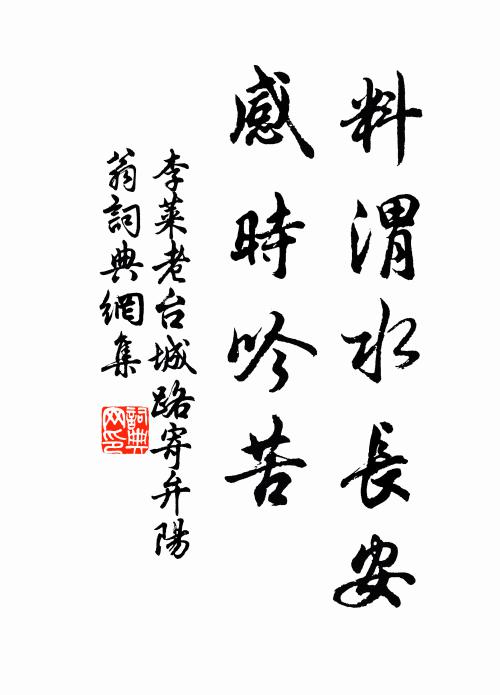 料渭水長安
感時吟苦
李萊老台城路寄弁陽
翁詞典網集
詞典
网印